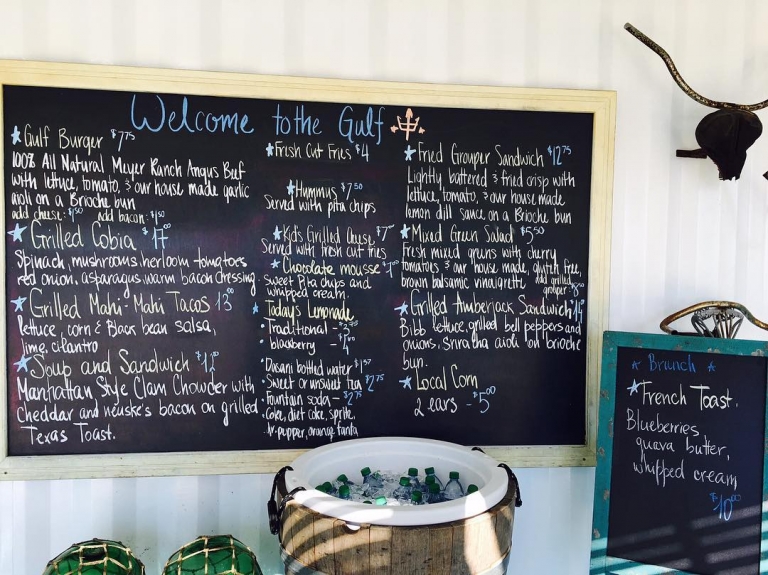 Welcome to the Gulf
Gulf Burger $7.75
100% All Natural Meyer Ranch Angus Beef
with lettuce, tomato, & our house made garlic
aioli on a Brioche bun
add cheese: $1.50 add bacon: $1.50
Grilled Cobia $17.00
Spinach, mushrooms, heirloom tomatoes,
red onion, asparagus, warm bacon dressing
Grilled Mahi-Mahi Tacos 13.00
lettuce, corn & Black bean salsa,
lime, cilantro
Soup and Sandwich $12
Manhattan Style Clam Chowder with
cheddar and neuske's bacon on grilled
Texas Toast.
Fresh Cut Fries $4
Hummus $7.50
Served with pita chips
Kid's Grilled Cheese $7
Served with fresh cut fries
Chocolate mousse
Sweet Pita chips and
whipped cream.
Today's Lemonade
Traditional -
blackberry -
Dasani bottled water
Sweet or unsweet tea $2.75
Fountain soda -
Coke, diet coke, sprite,
dr. pepper, orange fanta
Fried Grouper Sandwich $12.75
Lightly battered & fried crisp with
lettuce, tomato, & our house made
lemon dill sauce on a Brioche bun
Mixed Green Salad $5.50
fresh mixed greens with cherry
tomatoes & our house made, gluten free,
brown balsamic vinaigrette. add grilled
grouper
Grilled Amberjack Sandwich
Bibb lettuce, grilled bell peppers and
onions, Sriracha aioli on brioche
bun.
Local Corn
2 ears - $5.00
Brunch
French Toast.
Blueberries,
guava butter,
whipped cream
$10.00